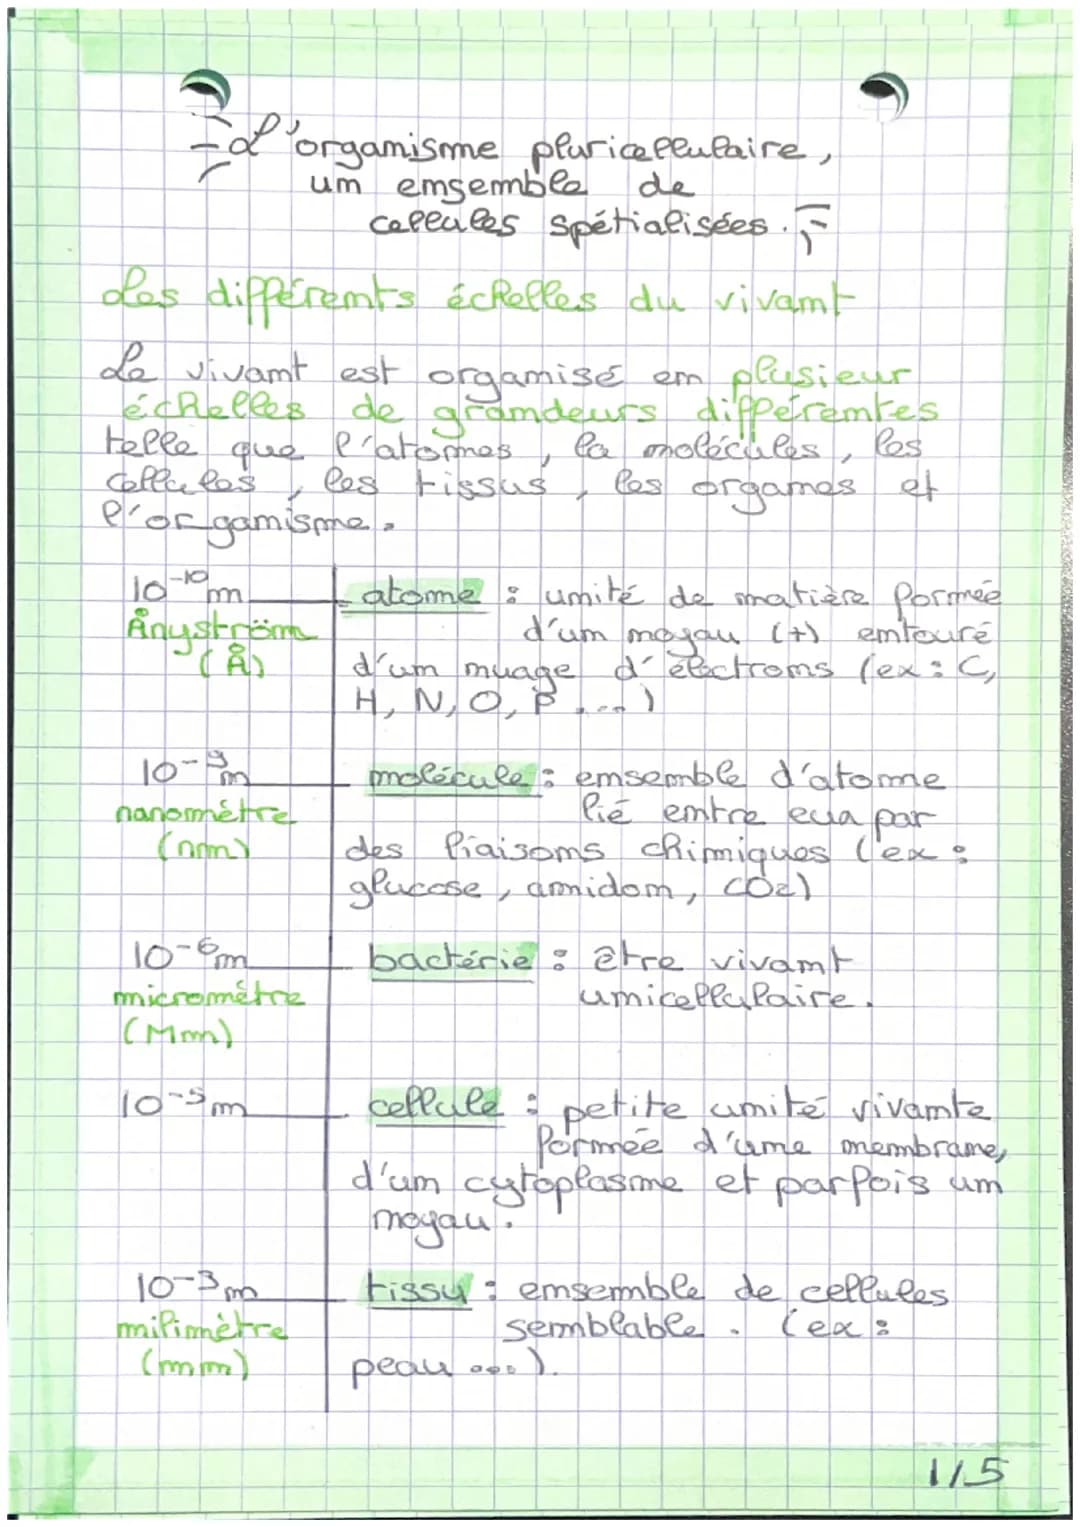 L'organisme pluricellulaire,
un ensemble de
cellules spétialisées.
Les différents échelles du vivant
Le vivant est organisé en plusieur
échelles de grandeurs différentes
telle que l'atomes, la molécules, les
cellules, les tissus, les organes et
l'organisme.
10⁻¹⁰m
Ångström
(Å)
atome : unité de matière formée
d'un noyau (+) entouré
d'un nuage d'électrons (ex : C,
H, N, O, P ...)
10⁻⁹m
nanomètre
(nm)
molécule : ensemble d'atome
lié entre eux par
des liaisons chimiques (ex :
glucose, amidon, CO2)
10⁻⁶m
micromètre
(Mm)
bactérie : être vivant
unicellulaire.
10⁻⁵m
cellule : petite unité vivante
formée d'une membrane,
d'un cytoplasme et parfois un
noyau.
10⁻³m
milimètre
(mm)
tissu : ensemble de cellules
semblable. (ex :
peau ...).
1/5